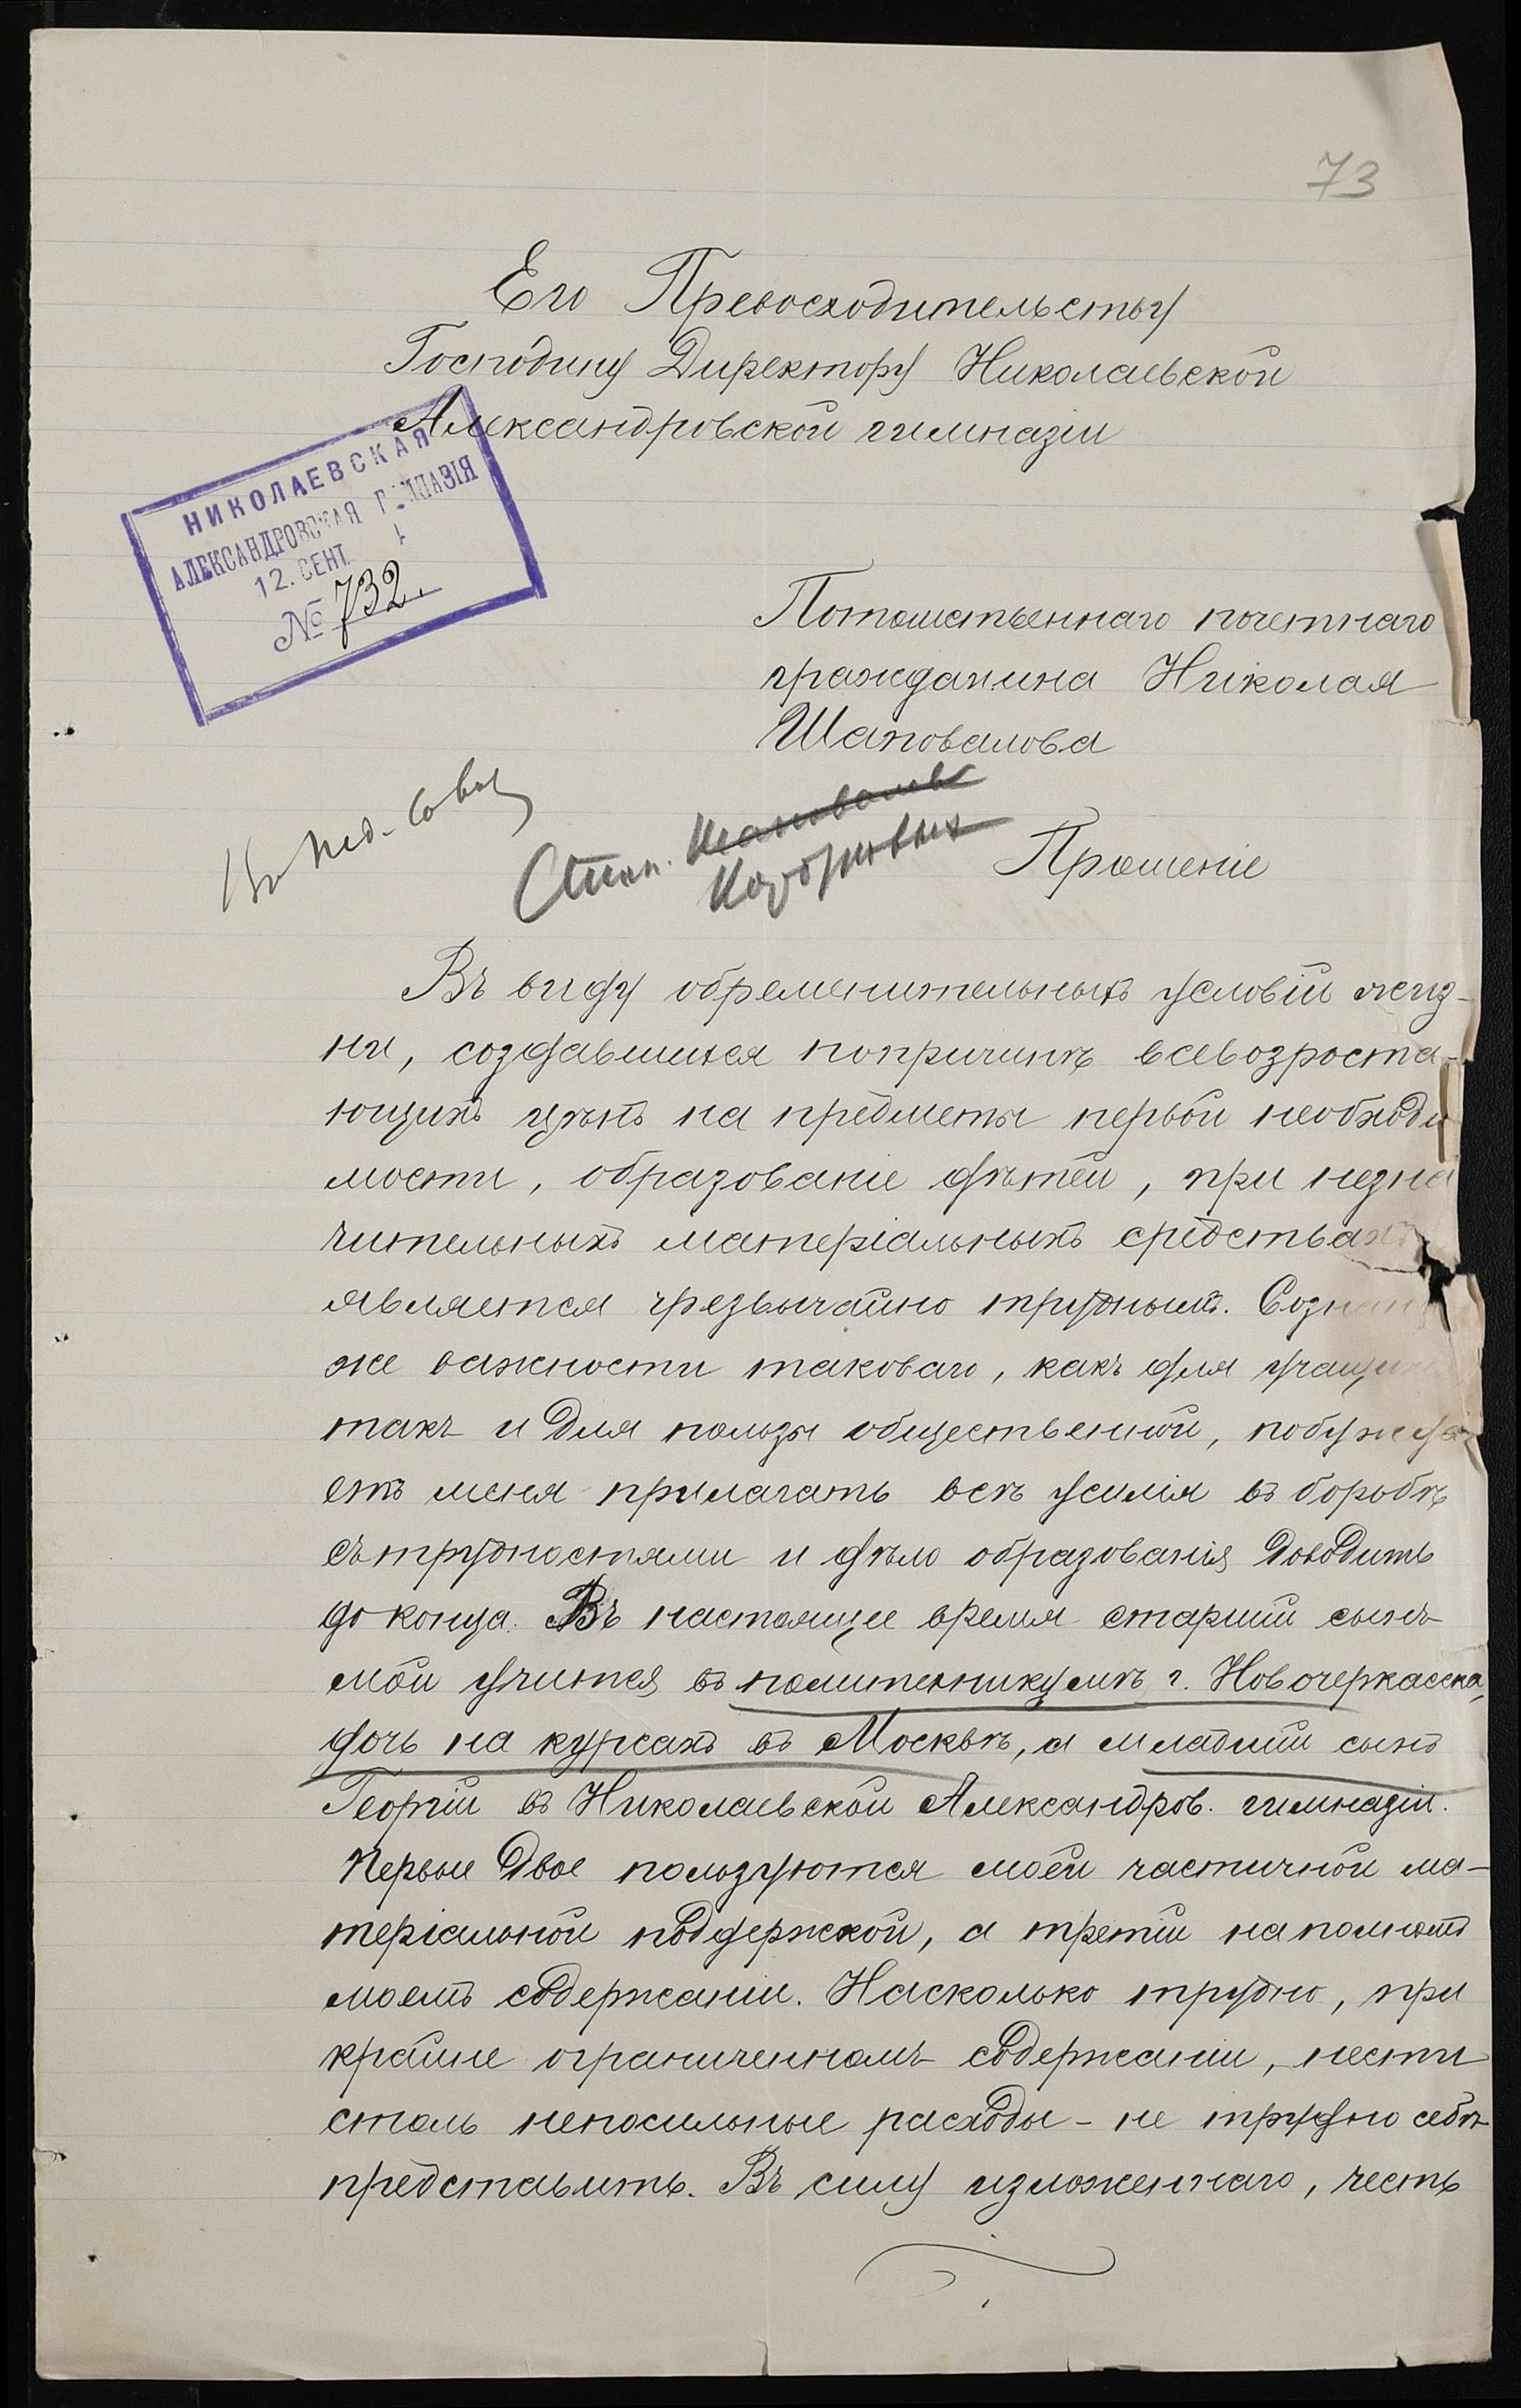 73
Его Превосходительству
Господину Директору Николаевской
Александровской гимназіи
НИКОЛАЕВСКАЯ
АЛЕКСАНДРОВСКАЯ ГИМНАЗІЯ
12. СЕНТ.
№ 732.
Потомственнаго почетнаго
гражданина Николая
Шаповалова
Въ пед. совѣ
Стип.
Прошеніе
Въ виду обременительныхъ условій жиз-
ни, создавшихся попричинѣ всевозроста-
ющихъ цѣнъ на предметы первой необходи
мости, образованіе дѣтей, при незна
чительныхъ матеріальныхъ средствахъ
является чрезвычайно труднымъ. Сознаніе
же важности таковаго, какъ для учащихся
такъ и для пользы общественной, побужда
етъ меня прилагать всѣ усилія въ борьбѣ
съ трудностями и дѣло образованія доводить
до конца. Въ настоящее время старшій сынъ
мой учится въ политехникумѣ г. Новочеркасска,
дочь на курсахъ въ Москвѣ, а младшій сынъ
Георгій въ Николаевской Александров. гимназіи.
Первые двое пользуются моей частичной ма-
теріальной поддержкой, а третій на полномъ
моемъ содержаніи. Насколько трудно, при
крайне ограниченномъ содержаніи, нести
столь непосильные расходы - не трудно себѣ
представить. Въ силу изложеннаго, честь